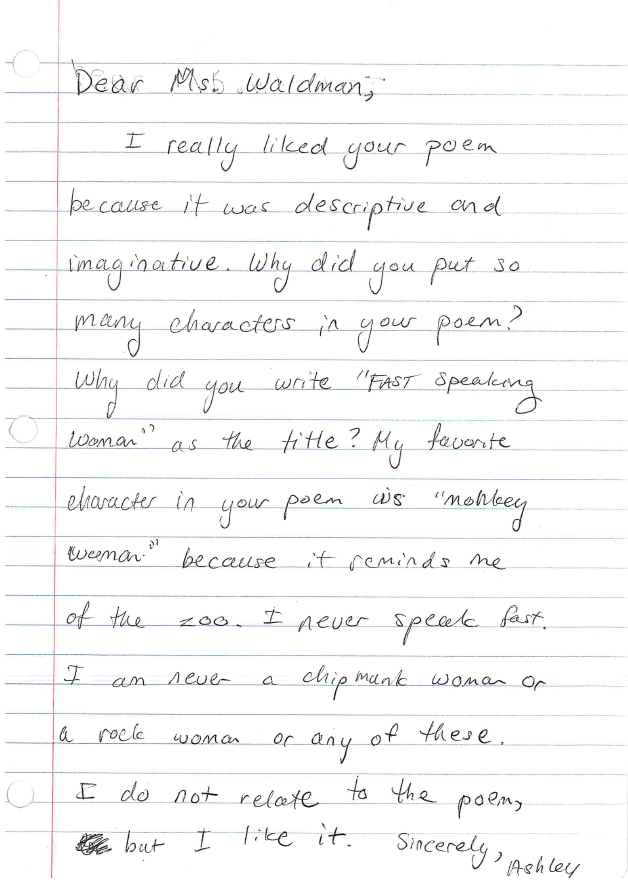 Dear Ms. Waldman,
I really liked your poem
because it was descriptive and
imaginative. Why did you put so
many characters in your poem?
Why did you write "FAST Speaking
woman" as the title? My favorite
character in your poem is "monkey
woman" because it reminds me
of the zoo. I never speak fast.
I am never a chipmunk woman or
a rock woman or any of these.
I do not relate to the poem,
but I like it. Sincerely, Ashley